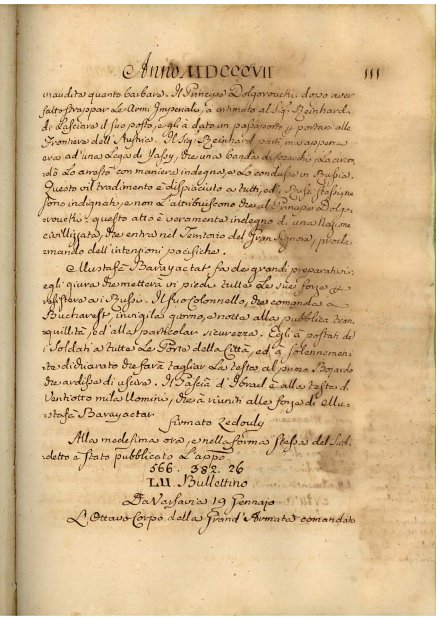 Anno MDCCCVII
111
inaudita quanto barbara. Il Principe Dolgorouchi, dopo aver
fatto strappar le Armi Imperiale, a intimato al Sigr. Reinhard,
de lasciare il suo posto, e gli à dato un passaporto p portarsi alle
Frontere dell'Austria. Il Sigr. Reinhard partì, ma appena
era ad'una lega di Yassy, che una banda di cosachi lo circon
dò, lo arrestò con maniera indegna, e lo condusse in Russia.
Questo vil tradimento è dispiaciuto a tutti, ed i Russi stessi ne
sono indignati, e non l'attribuiscono che al Principe Dolgo
rouchi: questo atto è veramente indegno di una Nazione
civillizzata, che entra nel Territorio del Gran Signore, procla
mando dell'intenzioni pacifiche.
Mustafà Barayactar fa de grandi preparativi;
egli giura che metterà in piede tutte le sue forze p
resistere ai Russi. Il suo Colonnello, che comanda a
Bucharest, invigila giorno, e notte alla pubblica tran
quillità, ed alla particolar sicurezza. Egli à postati de
Soldati a tutte le Porte della Città, ed à solennemen
te dichiarato che farà tagliar la testa al primo Bojardo
che ardisse di uscire. Il Pascià d'Ibrail è alla testa di
Ventiotto mila Uomini, che à riuniti alle forze di Mu
stafà Barayactar
firmato Ledouly
Alla medesima ora, e nella forma stessa del Sud
detto è stato pubblicato l'appo
566. 382. 26
LII. Bullettino
Da Varsavia 19 Gennajo
L'Ottavo Corpo della Grand'Armata comandato